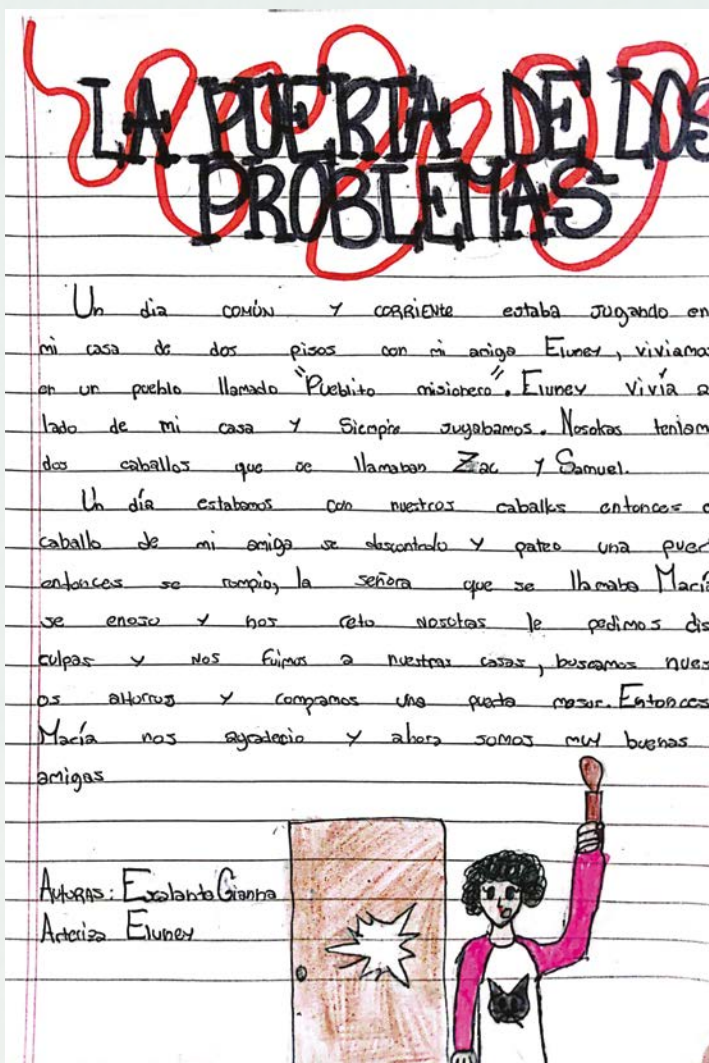 LA PUERTA DE LOS
PROBLEMAS
Un dia COMÚN Y CORRIENTE estaba Jugando en
mi casa de dos pisos con mi amiga Eluney, viviamos
en un pueblo llamado "Pueblito misionero". Eluney vivía a
lado de mi casa Y Siempre Jugabamos. Nosotras teniam
dos caballos que se llamaban Zac Y Samuel.
Un día estabamos con nuestros caballos entonces e
caballo de mi amiga se descontrolo y pateo una puert
entonces se rompio, la señora que se llamaba María
se enoJo Y nos reto Nosotras le pedimos dis
culpas y NOS Fuimos a nuestras casas, buscamos nues
os aHorros Y compramos una puerta meJor. Entonces
María nos agradecio Y ahora somos muy buenas
amigas
AutoRAS: Gianna
Eluney